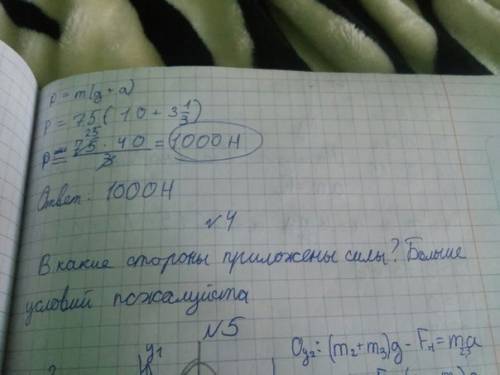 P = m(g + a)
P = 75(10 + 3 1/3)
P = 75 · 40 / 3 = 1000 Н
25
Ответ: 1000 Н
№ 4
В какие стороны приложены силы? Больше
условий пожалуйста
№ 5
y1
Oy2: (m2 + m3)g - F